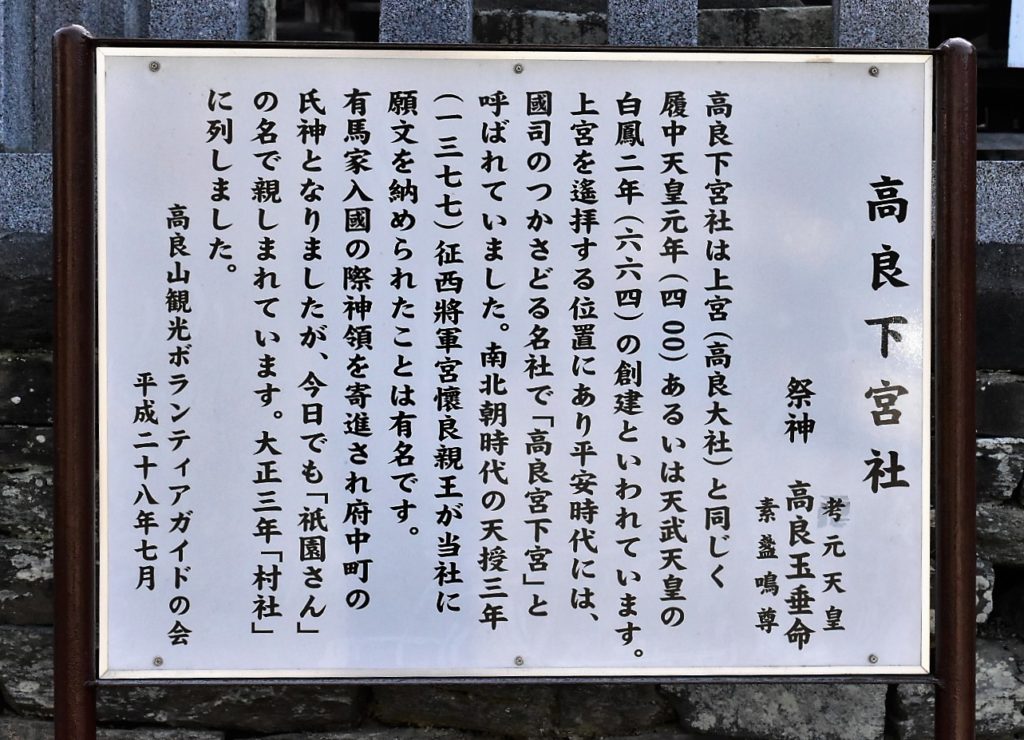 高良下宮社
祭神
孝元天皇
高良玉垂命
素盞鳴尊
高良下宮社は上宮(高良大社)と同じく
履中天皇元年(四〇〇)あるいは天武天皇の
白鳳二年(六六四)の創建といわれています。
上宮を遙拝する位置にあり平安時代には、
國司のつかさどる名社で「高良宮下宮」と
呼ばれていました。南北朝時代の天授三年
(一三七七)征西將軍宮懷良親王が当社に
願文を納められたことは有名です。
有馬家入國の際神領を寄進され府中町の
氏神となりましたが、今日でも「祇園さん」
の名で親しまれています。大正三年「村社」
に列しました。
高良山観光ボランティアガイドの会
平成二十八年七月